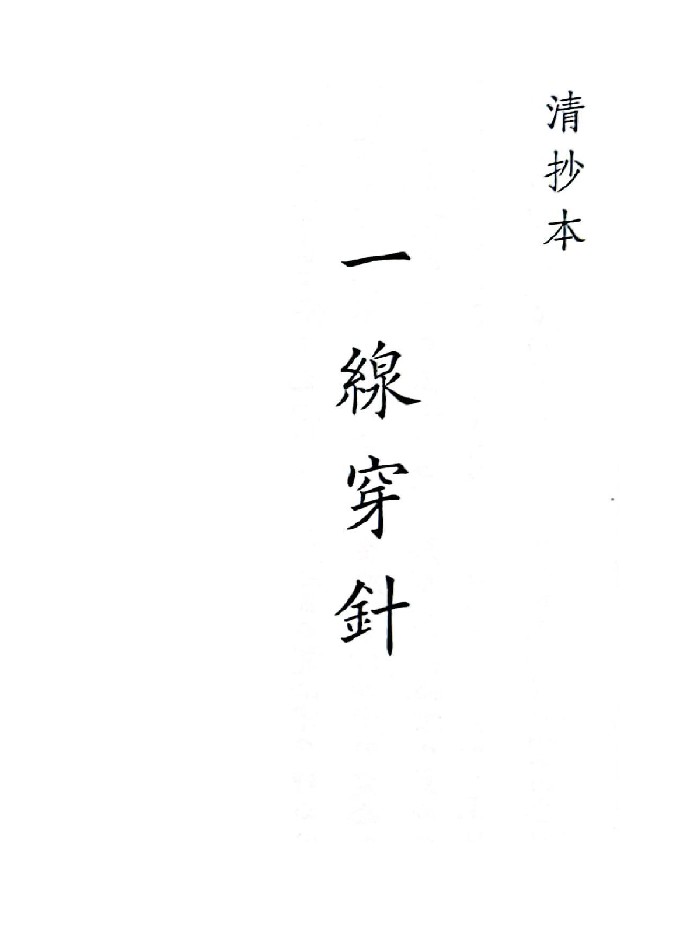 清抄本
一線穿針